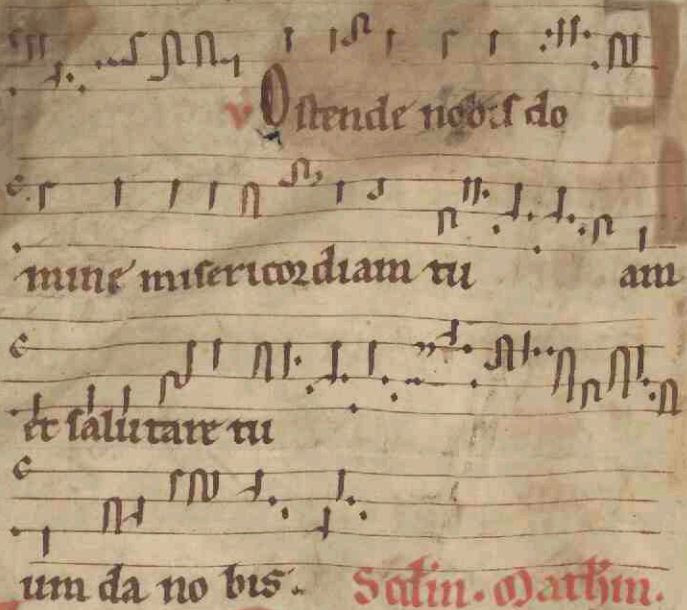 v Ostende nobis do
mine misericordiam tu am
et salutare tu
um da no bis.